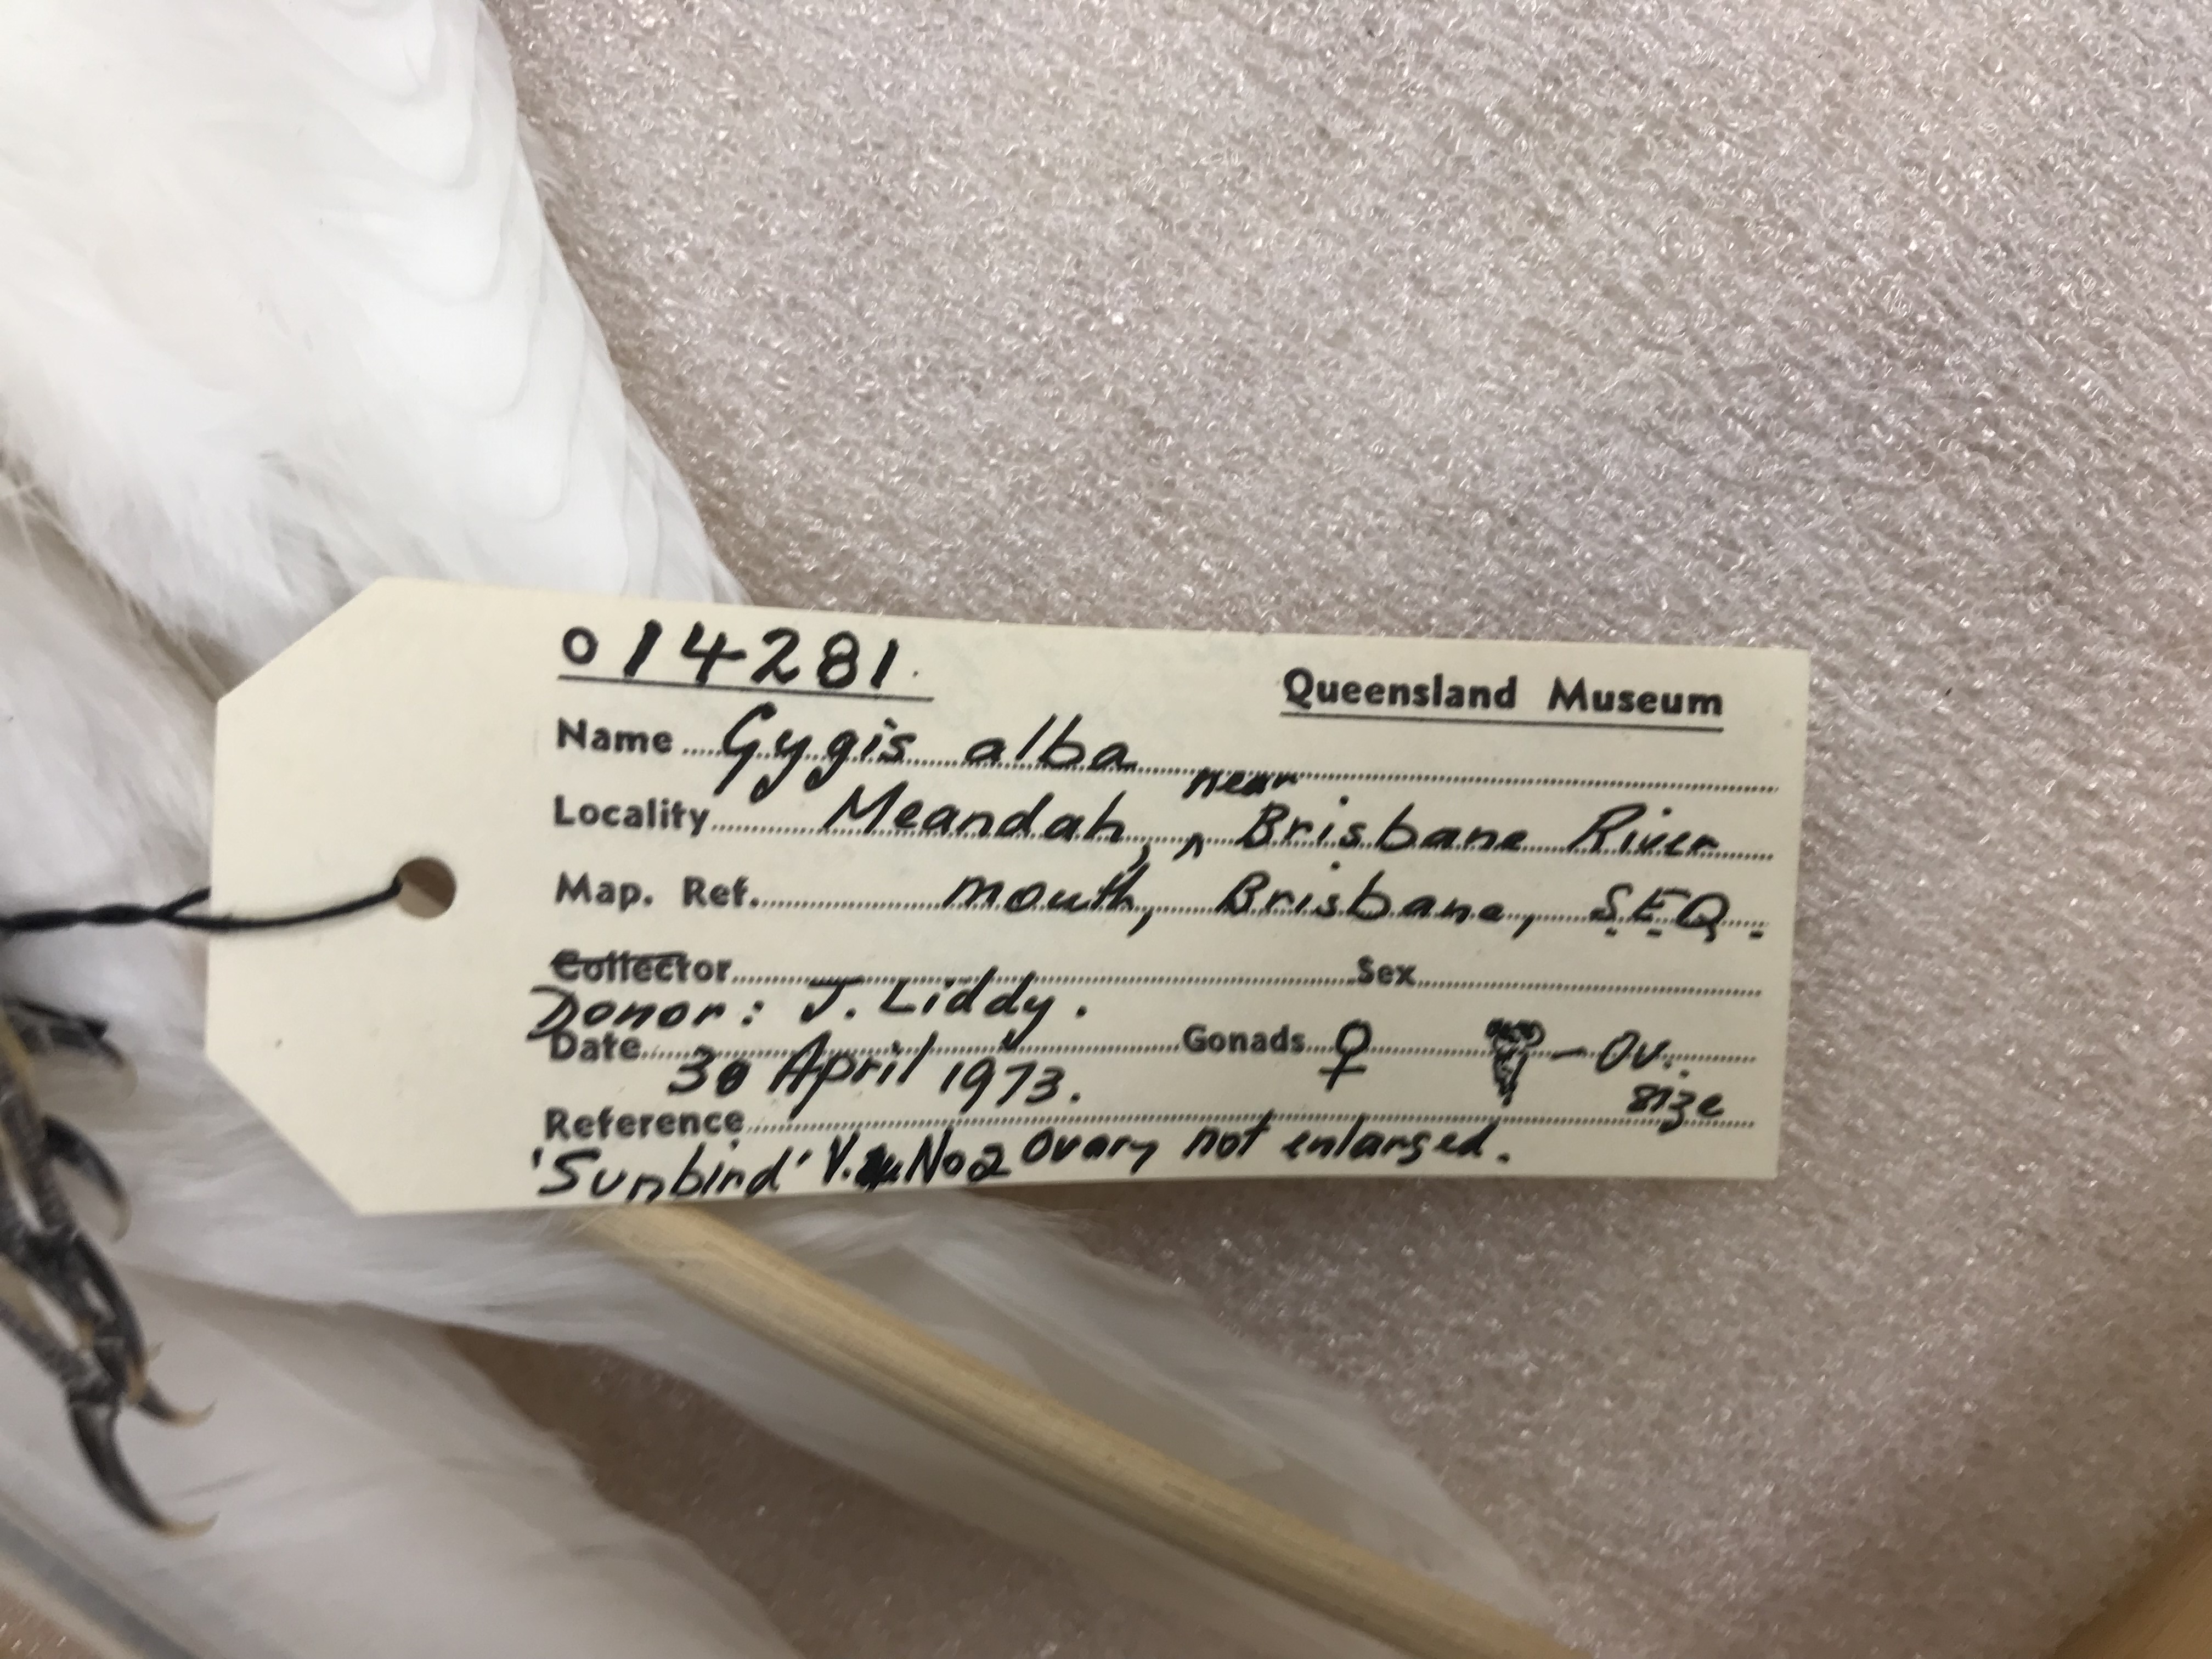 O 14281.
Queensland Museum
Name Gygis alba
near
Locality Meandah, n Brisbane River
Map. Ref. mouth, Brisbane, S.E.Q.
Collector Sex
Donor: J. Liddy.
Date 30 April 1973. Gonads ♀ – Ov. size
Reference
'Sunbird' V. No 2 Ovary not enlarged.